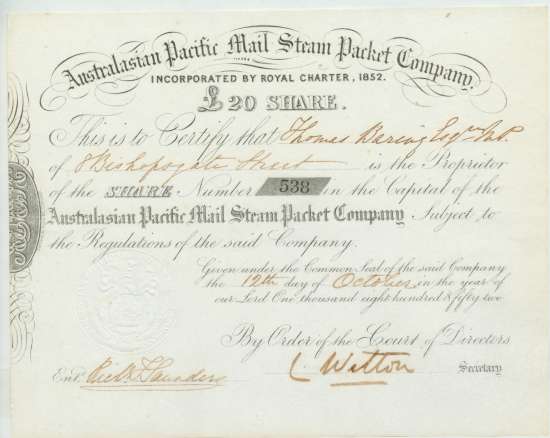 Australasian Pacific Mail Steam Packet Company.
INCORPORATED BY ROYAL CHARTER, 1852.
£20 SHARE.
This is to Certify that Thomas Baring Esqre M.P.
of 8 Bishopsgate Street is the Proprietor
of the SHARE Number 538 in the Capital of the
Australasian Pacific Mail Steam Packet Company Subject to
the Regulations of the said Company.
Given under the Common Seal of the said Company
the 12th day of October in the year of
our Lord One thousand eight hundred & fifty two
By Order of the Court of Directors
Entd. Saunders
Secretary